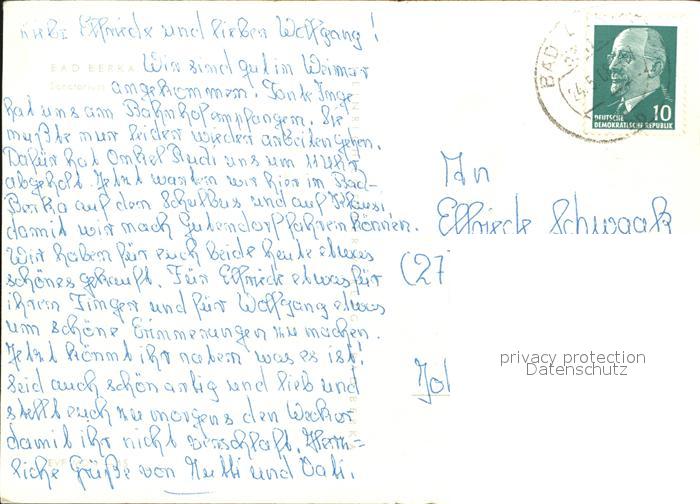 Liebe Elfriede und lieber Wolfgang!
BAD BERKA
Wir sind gut in Weimar
angekommen. Tante Inge
hat uns am Bahnhof empfangen. Sie
mußte nur leider wieder arbeiten gehen.
Dafür hat Onkel Rudi uns um 11 Uhr
abgeholt. Jetzt warten wir hier im Bad-
Berka auf den Schulbus und auf Klausi
damit wir nach Gutendorf fahren können.
Wir haben für euch beide heute etwas
schönes gekauft. Für Elfriede etwas für
ihren Finger und für Wolfgang etwas
um schöne Erinnerungen zu machen.
Jetzt könnt ihr raten was es ist!
Seid auch schön artig und lieb und
stellt euch zu morgens den Wecker
damit ihr nicht verschlaft. Herz-
liche Grüße von Mutti und Vati.
BAD
DEUTSCHE
DEMOKRATISCHE REPUBLIK
10
An
Elfriede Schwaak
(27
Jol
privacy protection
Datenschutz